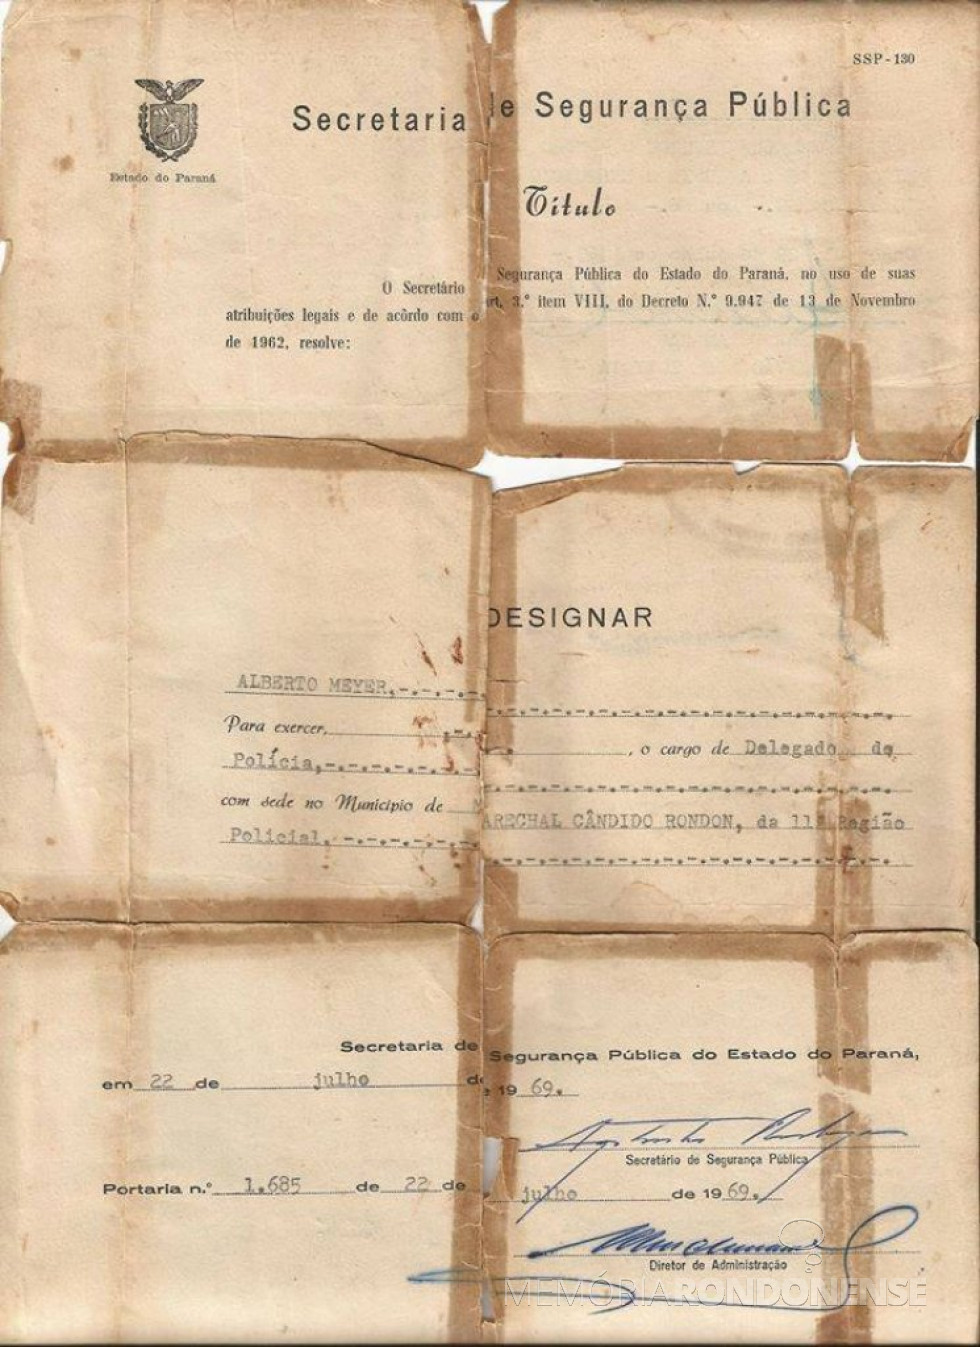 SSP - 130
Secretaria de Segurança Pública
Estado do Paraná
Título
O Secretário Segurança Pública do Estado do Paraná, no uso de suas
atribuições legais e de acôrdo com o art. 3.º item VIII, do Decreto N.º 9.947 de 13 de Novembro
de 1962, resolve:
DESIGNAR
ALBERTO MEYER,-.-.-.
Para exercer, , o cargo de Delegado de
Polícia,-.-.-.-.
com sede no Município de MARECHAL CÂNDIDO RONDON, da 11ª Região
Policial,-.-.-.-.
Secretaria de Segurança Pública do Estado do Paraná,
em 22 de julho de 1969.
Secretário de Segurança Pública
Portaria n.º 1.685 de 22 de julho de 1969.
Diretor de Administração
MEMÓRIARONDONENSE